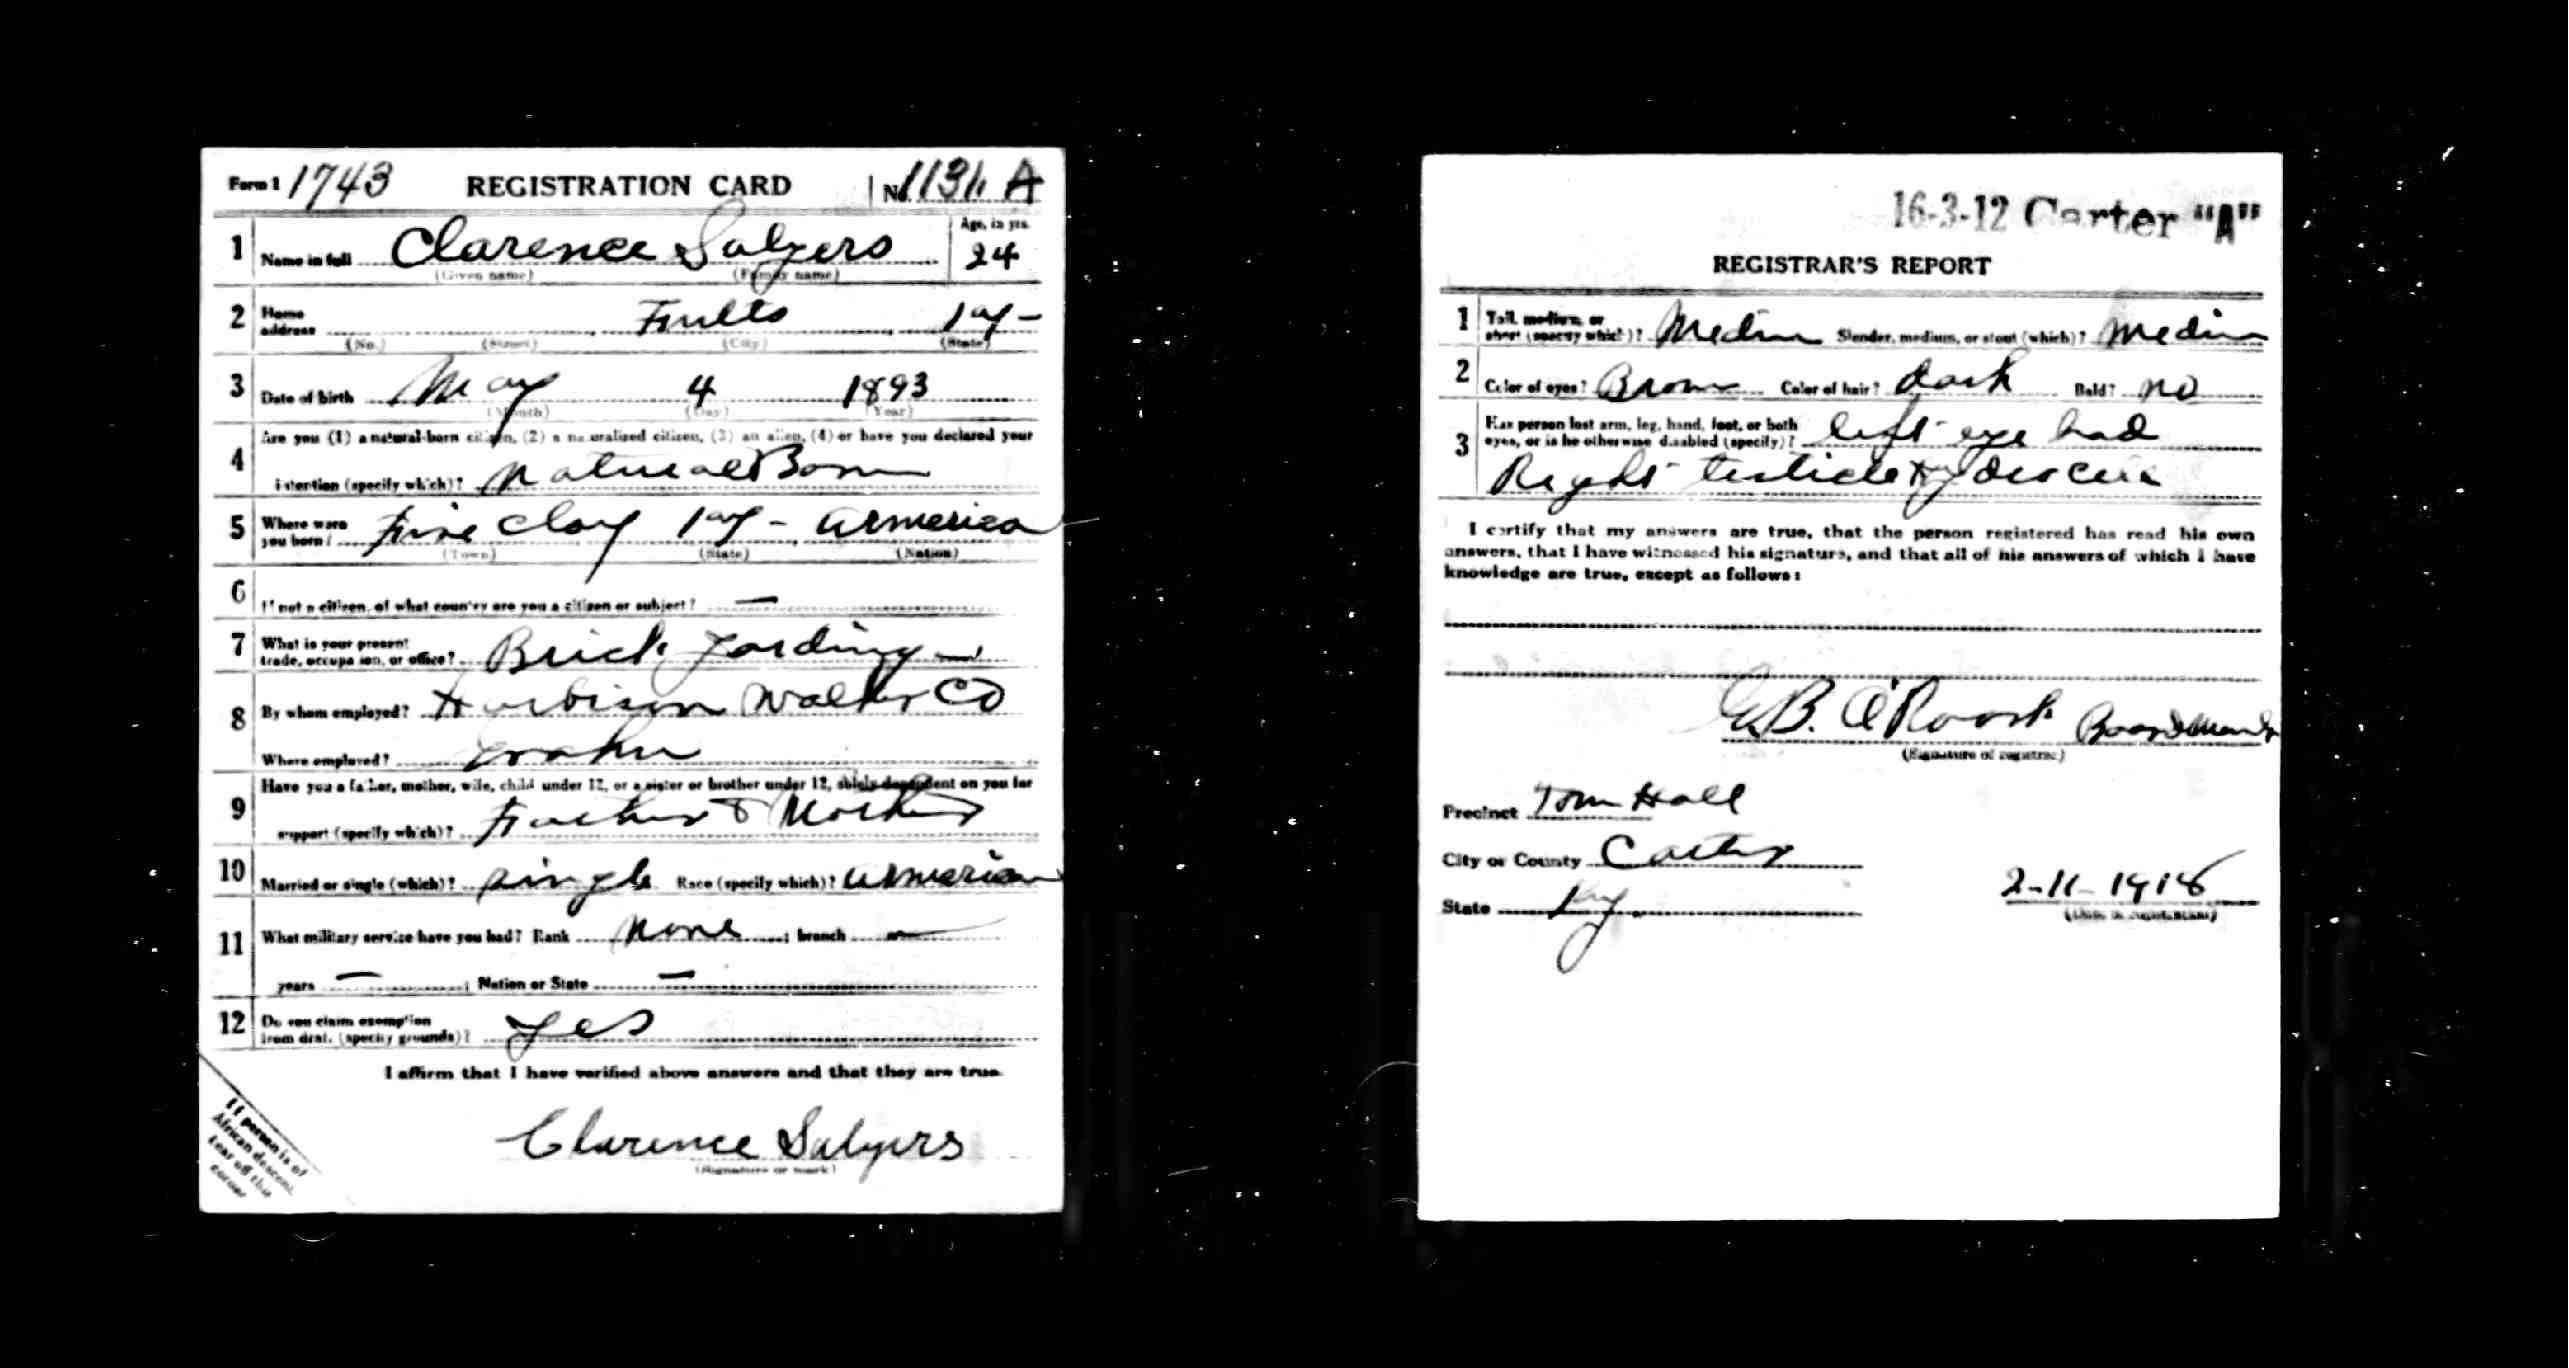 Form 1 1743 REGISTRATION CARD No. A
1 Name in full Clarence Salyers Age, in yrs. 24
(Given name) (Family name)
2 Home address Fults Ky-
(No.) (Street) (City) (State)
3 Date of birth May 4 1893
(Month) (Day) (Year)
Are you (1) a natural-born citizen, (2) a naturalized citizen, (3) an alien, (4) or have you declared your
4 intention (specify which)? Natural Born
5 Where were you born? Fire Clay Ky - America
(Town) (State) (Nation)
6 If not a citizen, of what country are you a citizen or subject? —
7 What is your present trade, occupation, or office? Brick Yarding
8 By whom employed? Harbison Walker CO
Where employed? Grahn
Have you a father, mother, wife, child under 12, or a sister or brother under 12, solely dependent on you for
9 support (specify which)? Father & Mother
10 Married or single (which)? single Race (specify which)? American
11 What military service have you had? Rank none ; branch —
years — ; Nation or State —
12 Do you claim exemption from draft (specify grounds)? yes
I affirm that I have verified above answers and that they are true.
Clarence Salyers
(Signature or mark)
If person is of
African descent,
tear off this
corner
16-3-12 Carter "A"
REGISTRAR'S REPORT
1 Tall, medium, or short (specify which)? Medium Slender, medium, or stout (which)? Medium
2 Color of eyes? Brown Color of hair? dark Bald? no
3 Has person lost arm, leg, hand, foot, or both eyes, or is he otherwise disabled (specify)? left eye bad
Right testicle Hydrocele
I certify that my answers are true, that the person registered has read his own
answers, that I have witnessed his signature, and that all of his answers of which I have
knowledge are true, except as follows:
B. O'Roark
(Signature of registrar)
Precinct Tom Hall
City or County Carter
State Ky.
2-11-1918
(Date of registration)